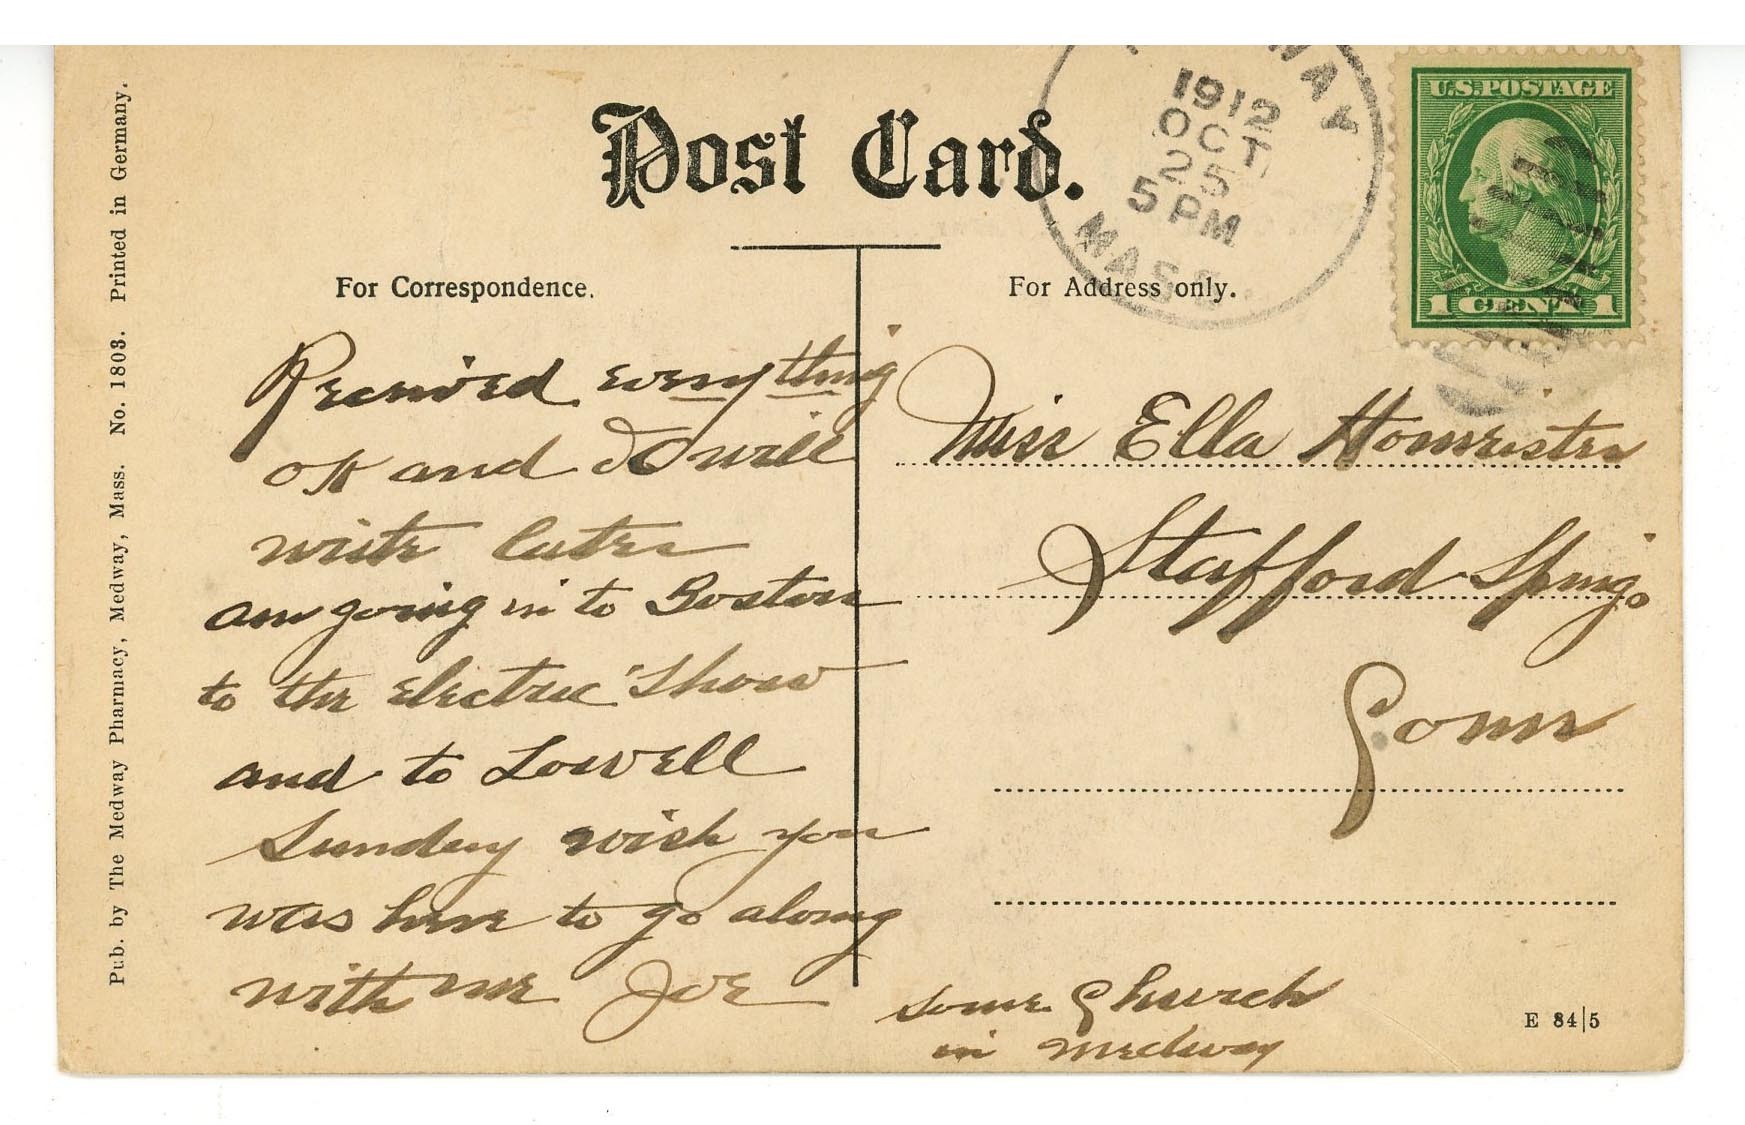 Post Card.
WAY
1912
OCT
25
5 PM
MASS.
U.S. POSTAGE
1 CENT 1
For Correspondence.
For Address only.
Received everything
OK and will
write later
am going in to Boston
to the electric Show
and to Lowell
Sunday wish you
was here to go along
with me Joe
Miss Ella
Stafford Spring.
Conn
some Church
in Medway
E 84|5
Pub. by The Medway Pharmacy, Medway, Mass. No. 1803. Printed in Germany.